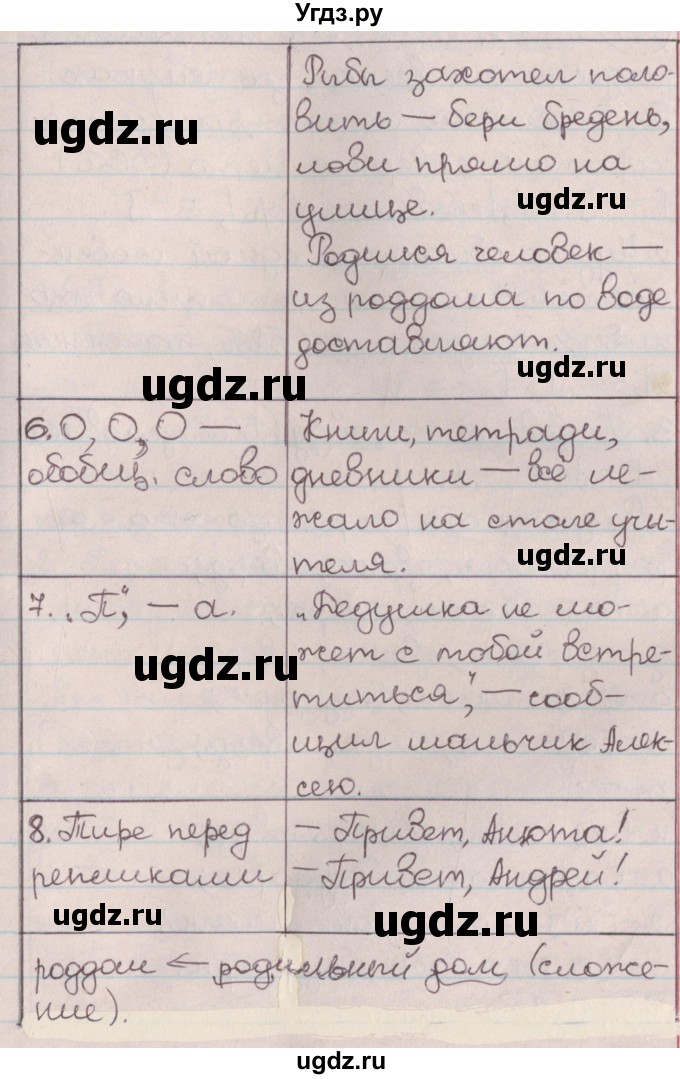 Угдз.ру
Рыбы захотел поло-
вить — бери бредень,
лови прямо на
улице.
Родился человек —
из роддома по воде
доставляют.
ugdz.ru
ugdz.ru
ugdz.ru
ugdz.ru
6. О, О, О —
обобщ. слово
Книги, тетради,
дневники — всё ле-
жало на столе учи-
теля.
ugdz.ru
7. „П“, — а.
„Дедушка не мо-
жет с тобой встре-
титься“, — сооб-
щил мальчик Алек-
сею.
ugdz.ru
8. Тире перед
репликами
— Привет, Анюта!
— Привет, Андрей!
ugdz.ru
ugdz.ru
роддом ← родильный дом (сложе-
ние).
ugdz.ru